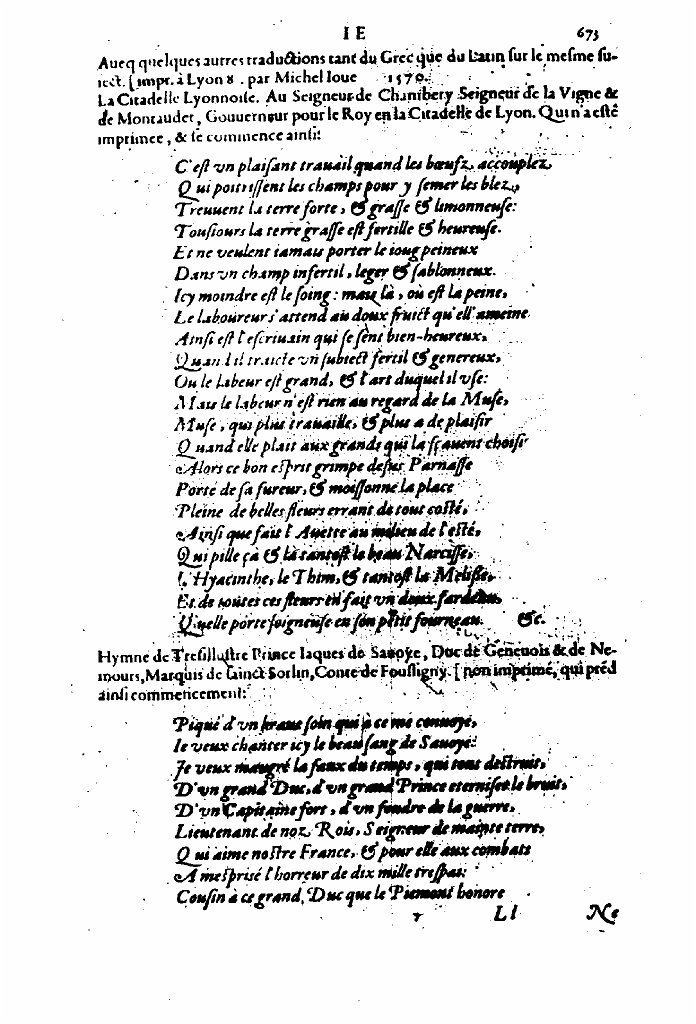 I E 673
Aueq quelques autres traductions tant du Grec que du Latin sur le mesme su-
iect. [impr. à Lyon 8. par Michel Ioue 1570.
La Citadelle Lyonnoise. Au Seigneur de Chambery Seigneur de la Vigne &
de Montaudet, Gouuerneur pour le Roy en la Citadelle de Lyon. Qui n'a esté
imprimee, & se commence ainsi:
C'est vn plaisant trauail quand les bœufz accouplez
Qui poitrissent les champs pour y semer les blez,
Treuuent la terre forte, & grasse & limonneuse:
Tousiours la terre grasse est fertille & heureuse.
Et ne veulent iamais porter le ioug peineux
Dans vn champ infertil, leger & sablonneux.
Icy moindre est le soing: mais là, où est la peine,
Le laboureur s'attend au doux fruict qu'ell' ameine
Ainsi est l'escriuain qui se sent bien-heureux,
Quand il traicte vn subiect fertil & genereux,
Ou le labeur est grand, & l'art duquel il vse:
Mais le labeur n'est rien au regard de la Muse,
Muse, qui plus trauaille, & plus a de plaisir
Quand elle plait aux grands qui la sçauent choisir
Alors ce bon esprit grimpe desus Parnasse
Porté de sa fureur, & moissonne la place
Pleine de belles fleurs errant de tout costé,
Ainsi que fait l'Auette au milieu de l'esté,
Qui pille çà & là tantost le beau Narcisse,
L'Hyacinthe, le Thim, & tantost la Melisse,
Et de toutes ces fleurs en fait vn doux fardeau,
Qu'elle porte soigneuse en son petit fourneau. &c.
Hymne de Tresillustre Prince Iaques de Sauoye, Duc de Geneuois & de Ne-
mours, Marquis de Sainct Sorlin, Conte de Foussigny. [non imprimé, qui préd
ainsi commencement:
Piqué d'vn braue soin qui à ce me conuoye,
Ie veux chanter icy le beau sang de Sauoye:
Je veux maugré la faux du temps, qui tous destruit,
D'vn grand Duc, d'vn grand Prince eterniser le bruit,
D'vn Capitaine fort, d'vn foudre de la guerre,
Lieutenant de noz Rois, Seigneur de mainte terre,
Qui aime nostre France, & pour elle aux combats
A mesprisé l'horreur de dix mille trespas:
Cousin à ce grand Duc que le Piemont honore
Ll Ne